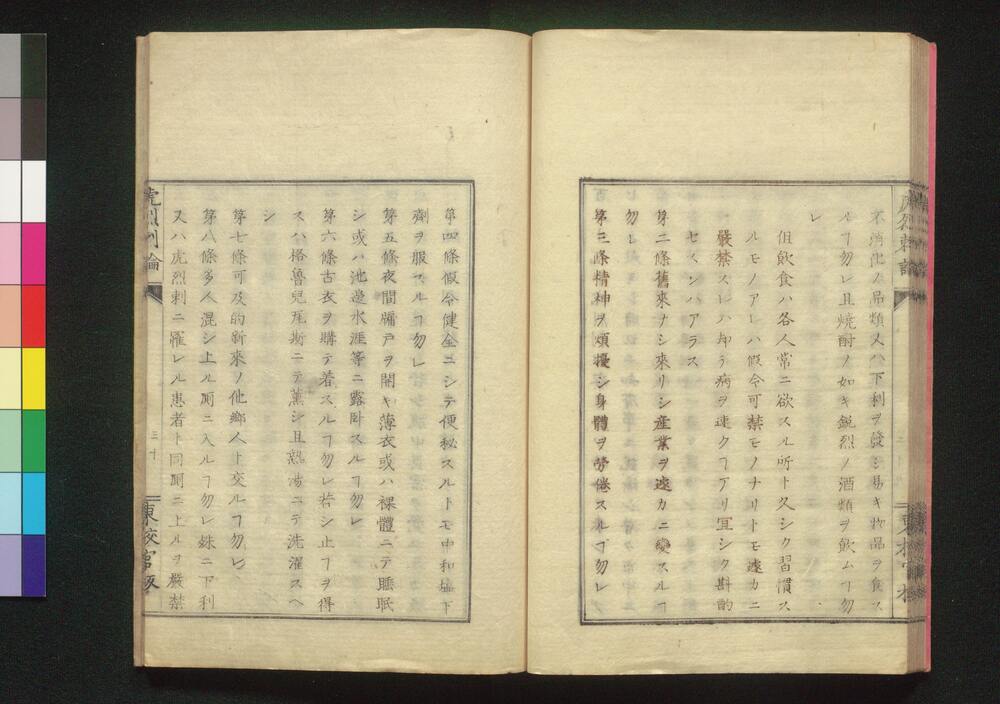 不消化ノ品類又ハ下利ヲ發シ易キ物品ヲ食ス
ルヿ勿レ且燒酎ノ如キ鋭烈ノ酒類ヲ飲ムヿ勿
レ
但飲食ハ各人常ニ欲スル所ト久シク習慣ス
ルモノアレハ假令可禁モノナリトモ遽カニ
嚴禁スレハ却テ病ヲ速クヿアリ宜シク斟酌
セスンハアラス
第二條舊來ナシ來リシ産業ヲ遽カニ變スルヿ
勿レ
第三條精神ヲ煩擾シ身體ヲ勞倦スルヿ勿レ
第四條假令健全ニシテ便秘スルトモ中和鹽下
劑ヲ服スルヿ勿レ
第五條夜間牖戸ヲ開キ薄衣或ハ裸體ニテ睡眠
シ或ハ池邊水涯等ニ露卧スルヿ勿レ
第六條古衣ヲ購テ着スルヿ勿レ若シ止ヿヲ得
スハ格魯兒瓦斯ニテ薫シ且熱湯ニテ洗濯スヘ
シ
第七條可及的新來ノ他鄉人ト交ルヿ勿レ
第八條多人混シ上ル厠ニ入ルヿ勿レ殊ニ下利
又ハ虎烈剌ニ罹レル患者ト同厠ニ上ルヲ嚴禁
虎烈剌論
三十
東校官版